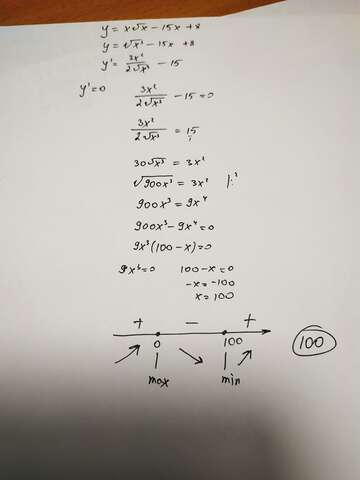 y = x√x - 15x + 8
y = √x³ - 15x + 8
y' = 3x²/2√x³ - 15
y' = 0 3x²/2√x³ - 15 = 0
3x²/2√x³ = 15
30√x³ = 3x²
√900x³ = 3x² |²
900x³ = 9x⁴
900x³ - 9x⁴ = 0
9x³(100 - x) = 0
9x³ = 0 100 - x = 0
-x = -100
x = 100
+ - +
0 100 100
max min